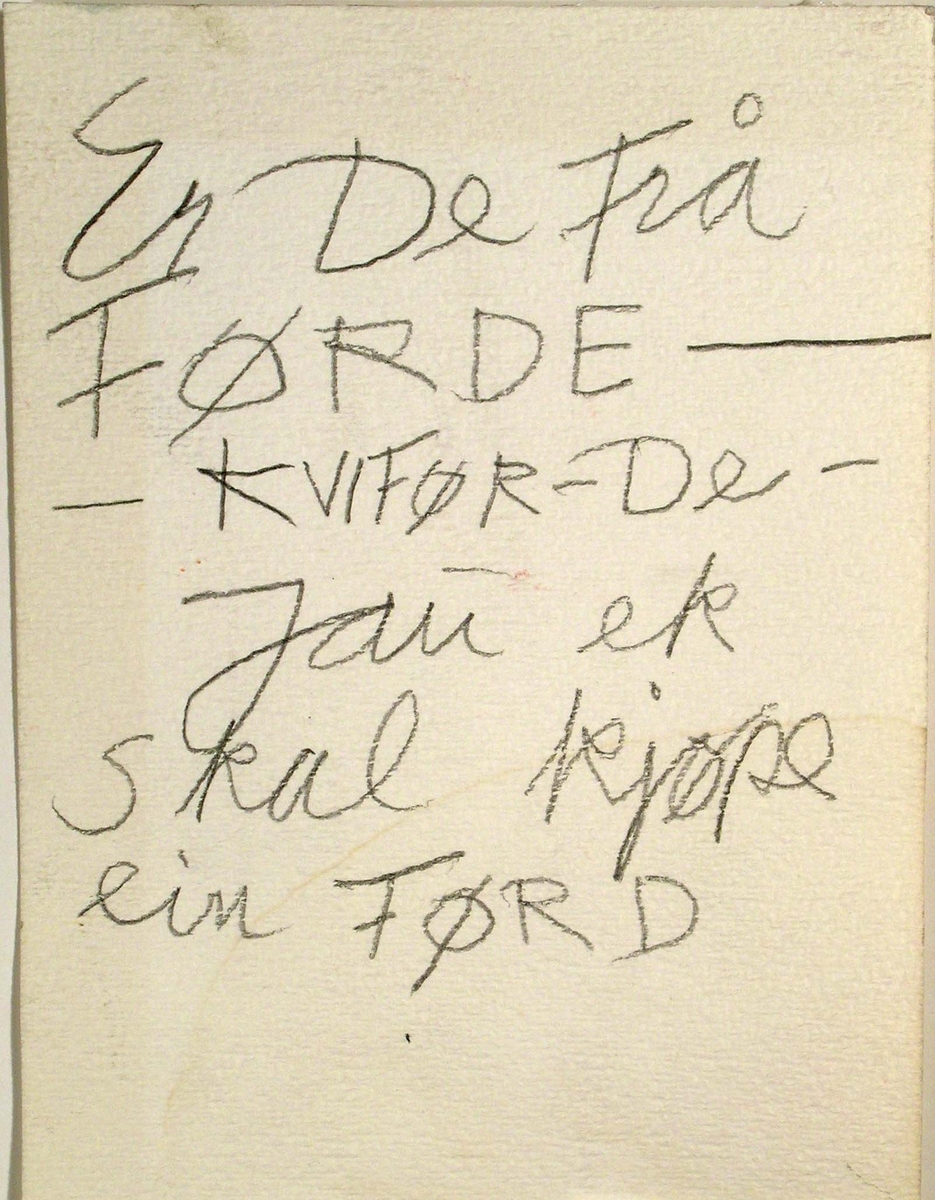 Er De Frå
FØRDE —
- KVIFØR - De -
Jau ek
skal kjøpe
ein FØRD